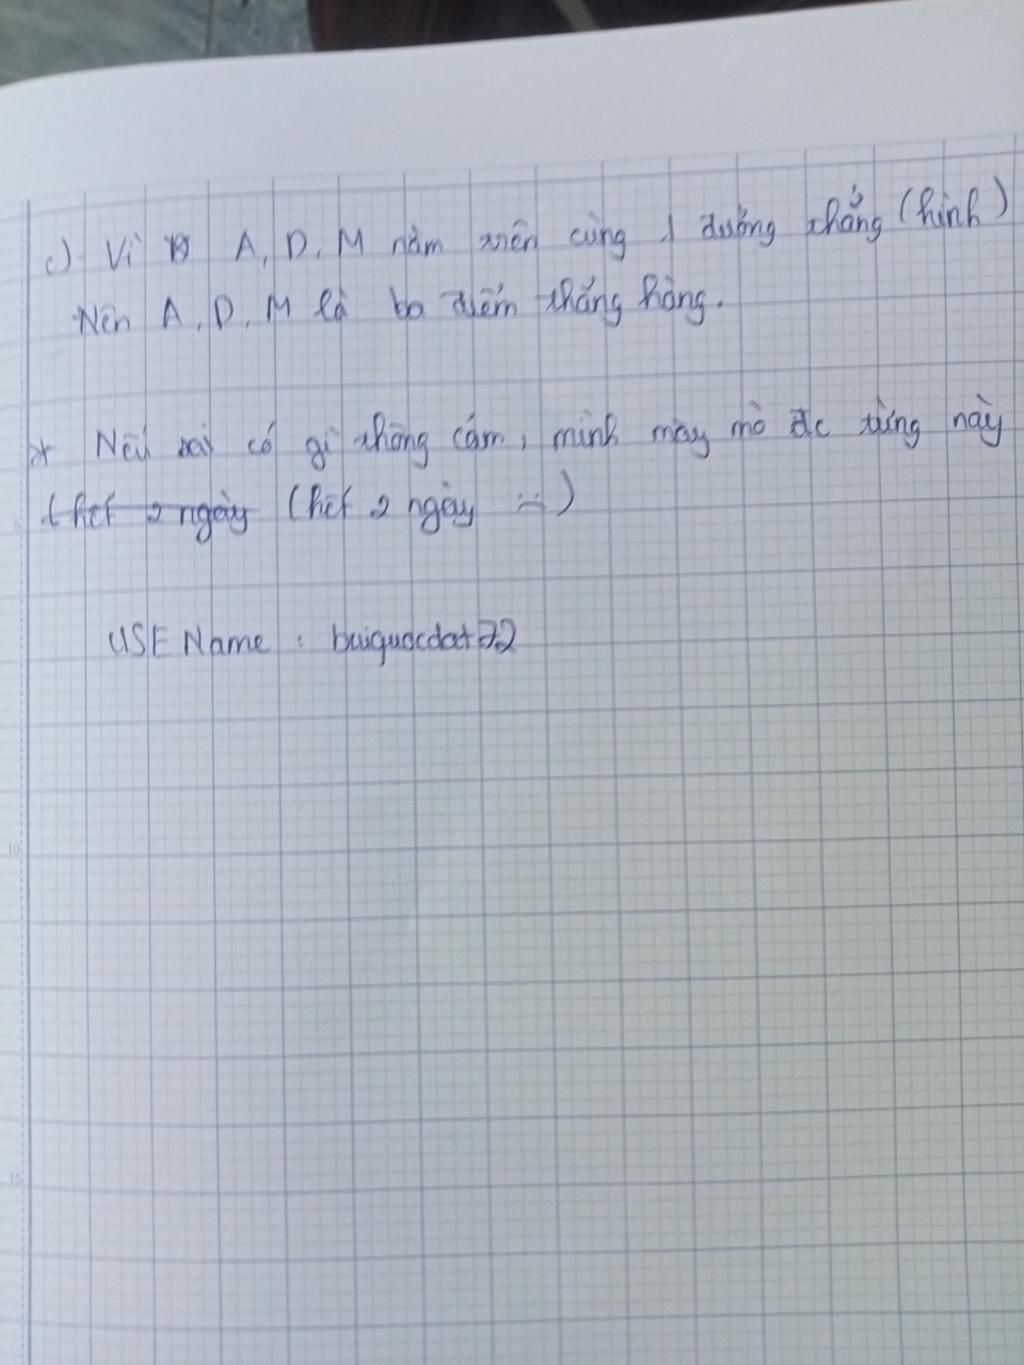 c) Vì A, D, M nằm trên cùng 1 đường thẳng (hình)
Nên A, D, M là ba điểm thẳng hàng.
* Nếu sai có gì thông cảm, mình mày mò đc từng này
(hết 2 ngày (hết 2 ngày :-)
USE Name : buiquocdat72